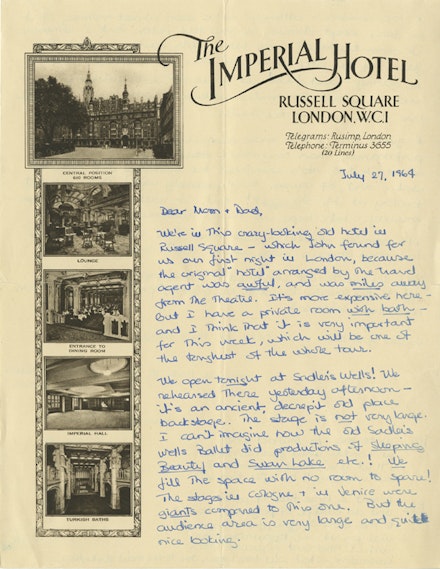 The
IMPERIAL HOTEL
RUSSELL SQUARE
LONDON, W.C.1
Telegrams: Rusimp, London
Telephone: Terminus 3655
(20 Lines)
CENTRAL POSITION
LOUNGE
ENTRANCE TO
DINING ROOM
IMPERIAL HALL
TURKISH BATHS
July 27, 1964
Dear Mom + Dad,
We're in this crazy-looking old hotel in
Russell Square - which John found for
us our first night in London, because
the original "hotel" arranged by the travel
agent was awful, and was miles away
from the theatre. It's more expensive here -
but I have a private room with bath -
and I think that it is very important
for this week, which will be one of
the toughest of the whole tour.
We open tonight at Sadler's Wells! We
rehearsed there yesterday afternoon -
it's an ancient, decrepit old place
backstage. The stage is not very large.
I can't imagine how the old Sadler's
Wells Ballet did productions of Sleeping
Beauty and Swan Lake etc.! We
fill the space with no room to spare!
The stages in Cologne + in Venice were
giants compared to this one. But the
audience area is very large and quite
nice looking.